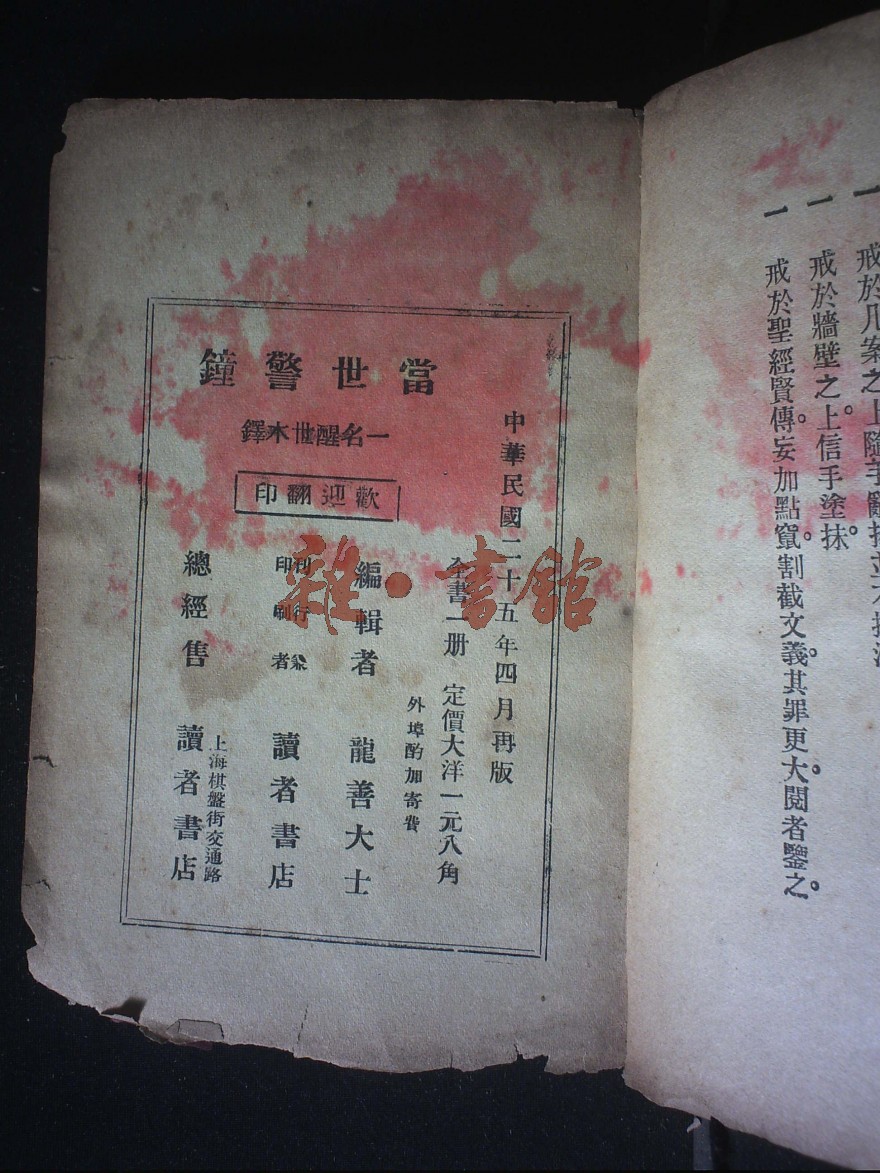 一 戒於牆壁之上信手塗抹。
一 戒於聖經賢傳。妄加點竄。割截文義。其罪更大。閱者鑒之。
當世警鐘
一名醒世木鐸
歡迎翻印
中華民國二十五年四月再版
全書一册 定價大洋一元八角
外埠酌加寄費
編輯者 龍善大士
刊行兼印刷者 讀者書店
總經售 上海棋盤街交通路 讀者書店
雜·書館